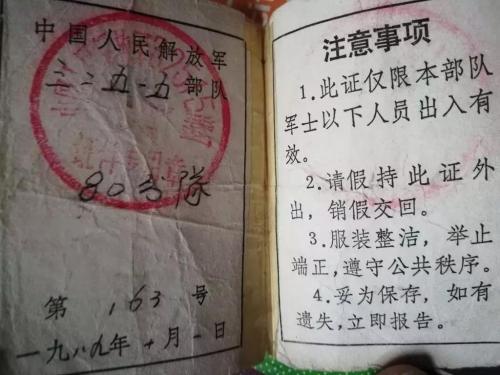 中国人民解放军
三三五一五部队
803分隊
第163号
一九八九年十月一日
注意事项
1.此证仅限本部队
军士以下人员出入有
效。
2.请假持此证外
出，销假交回。
3.服装整洁，举止
端正，遵守公共秩序。
4.妥为保存，如有
遗失，立即报告。